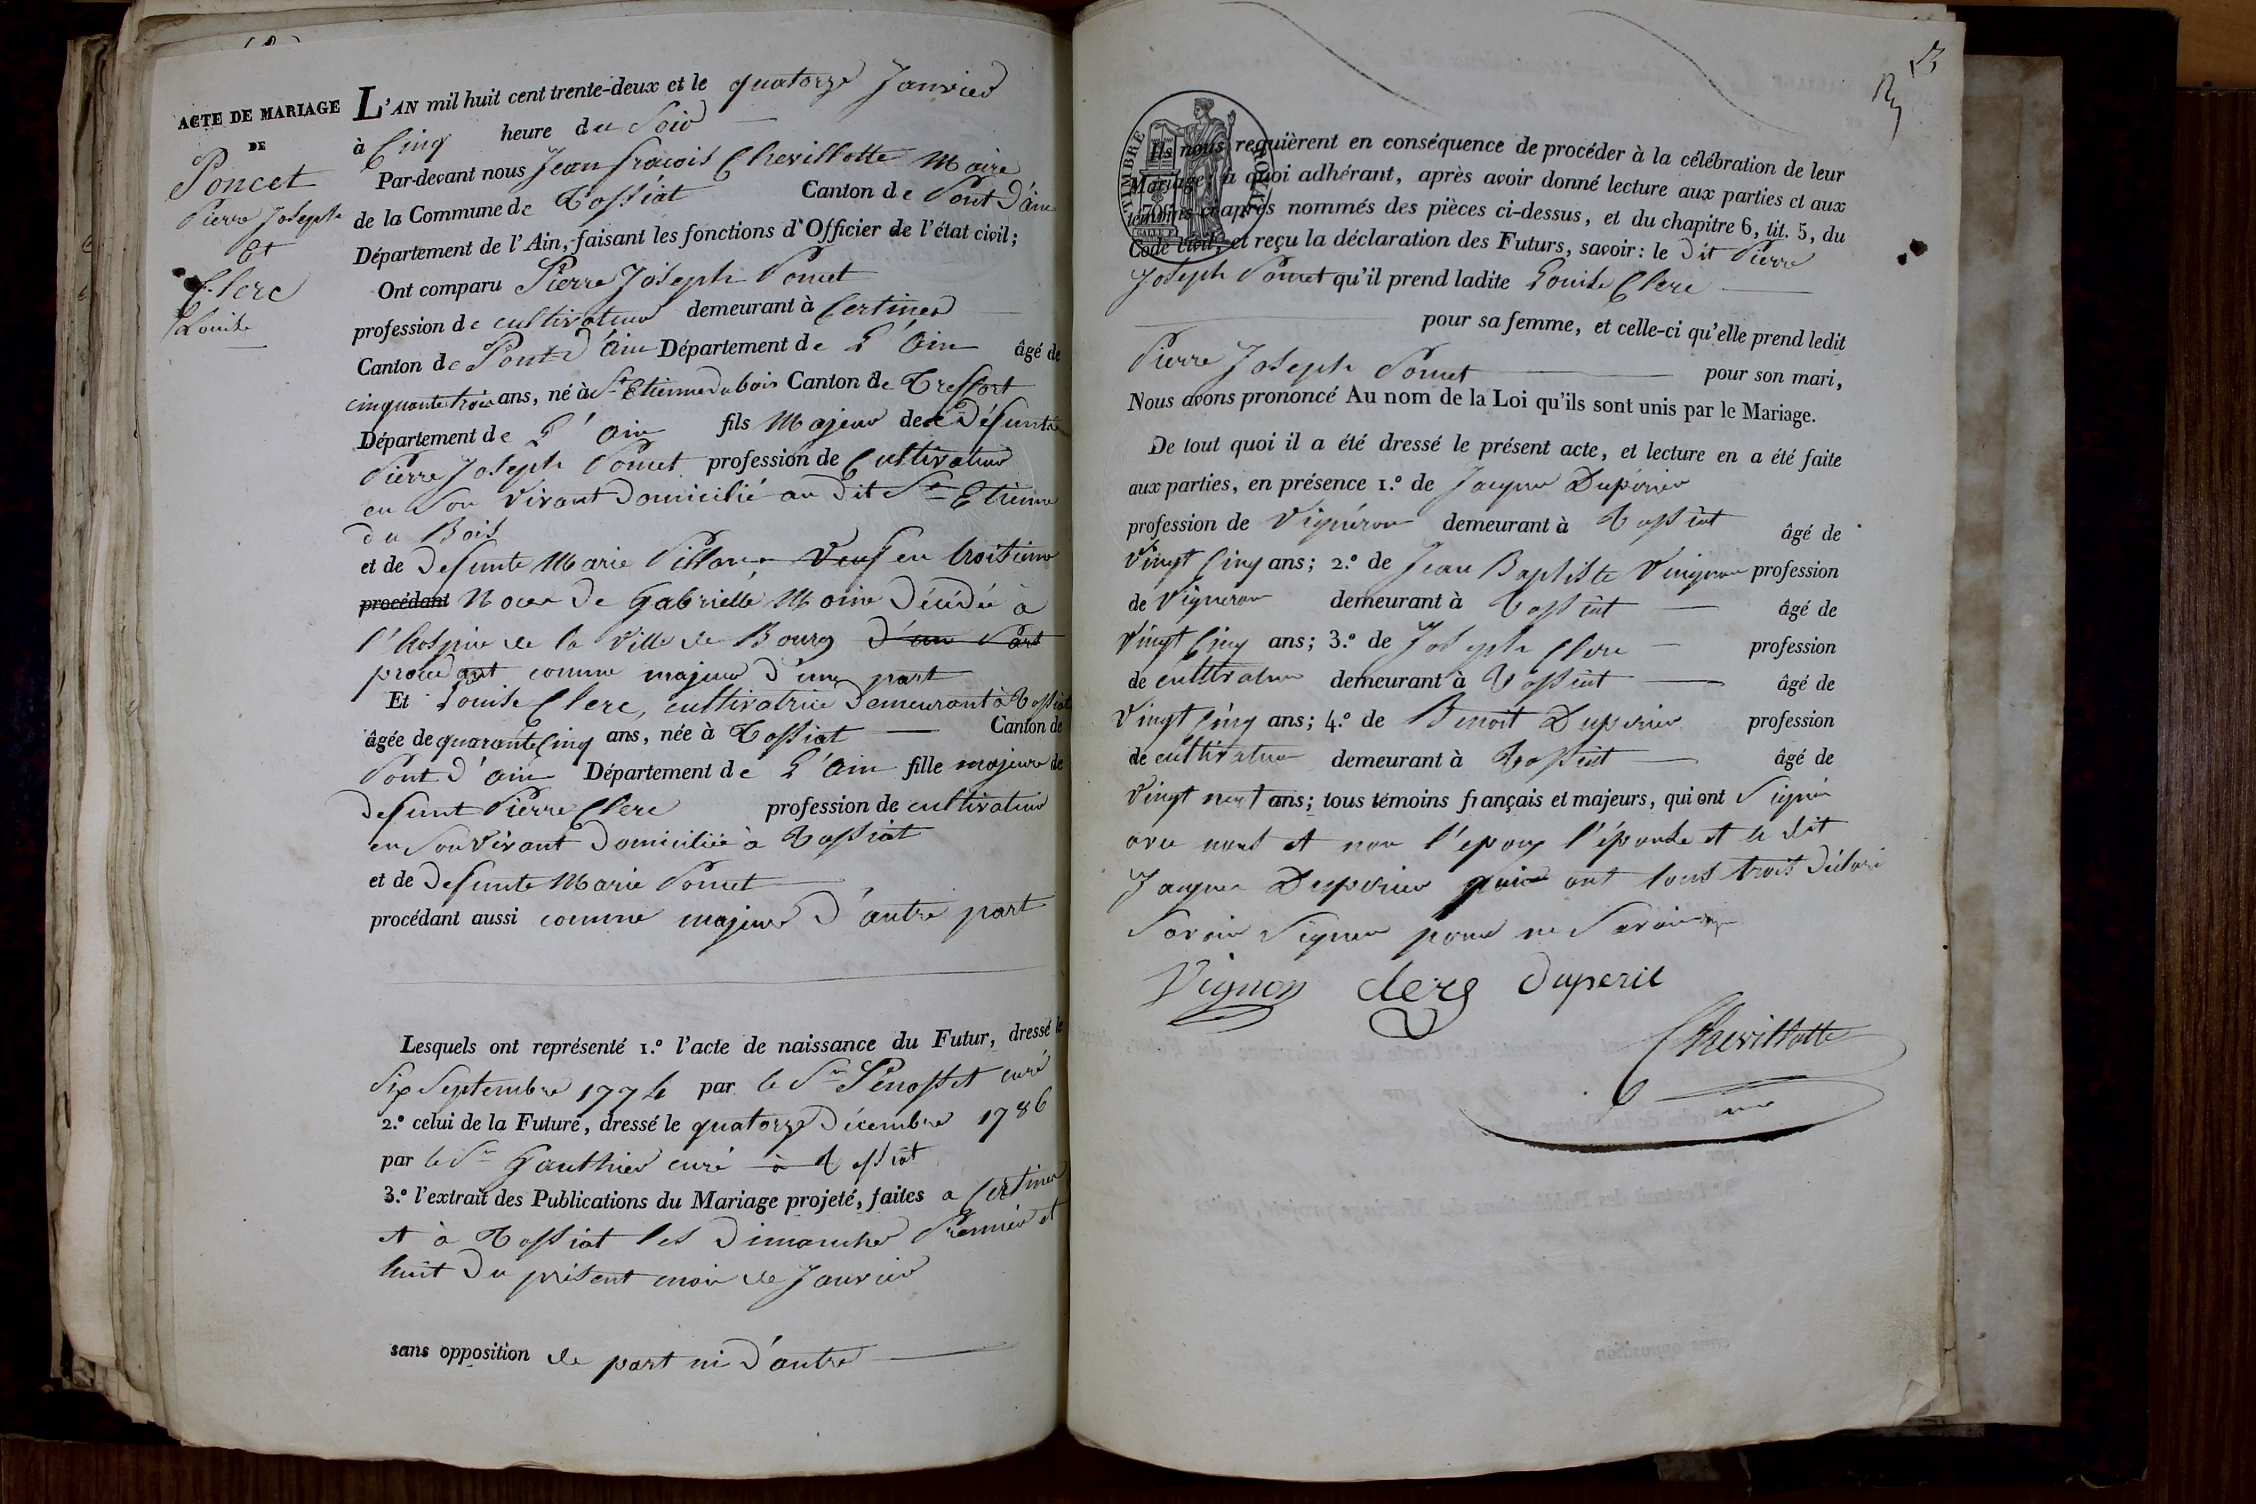 ACTE DE MARIAGE
DE
Poncet
Pierre Joseph
Et
Clerc
Louise
L'AN mil huit cent trente-deux et le quatorze Janvier
à Cinq heure du Soir
Par-devant nous Jean fracois Chevillotte Maire
de la Commune de Tossiat Canton de Pont D'ain
Département de l'Ain, faisant les fonctions d'Officier de l'état civil;
Ont comparu Pierre Joseph Poncet
profession de cultivateur demeurant à Certines
Canton de Pont D'ain Département de L'Ain âgé de
cinquante trois ans, né à St Etienne Dubois Canton de Treffort
Département de L'ain fils Majeur de Défunt
Pierre Joseph Poncet profession de Cultivateur
en Son Vivant Domicilié au dit St Etienne
du Bois
et de Defunte Marie Pillon Veuf en troisieme
procédant Noces De Gabrielle Moine Décédée à
l'hospice de la Ville de Bourg d'une Part
procedant comme majeur d'une part
Et Louise Clerc, cultivatrice Demeurant à Tossiat
âgée de quarante Cinq ans, née à Tossiat Canton de
Pont d'ain Département de L'Ain fille majeure de
Defunt Pierre Clerc profession de cultivateur
en Son Vivant Domiciliée à Tossiat
et de Defunte Marie Poncet
procédant aussi comme majeure D'autre part
Lesquels ont représenté 1.º l'acte de naissance du Futur, dressé le
Six Septembre 1774 par le Sr Penosset curé
2.º celui de la Future, dressé le quatorze Décembre 1786
par le Sr Gauthier curé à Tossiat
3.º l'extrait des Publications du Mariage projeté, faites a Certines
et à Tossiat les Dimanches Premier et
huit Du présent mois de Janvier
sans opposition de part ni D'autre
3
TIMBRE ROYAL
Ils nous requièrent en conséquence de procéder à la célébration de leur
Mariage; à quoi adhérant, après avoir donné lecture aux parties et aux
témoins ci-après nommés des pièces ci-dessus, et du chapitre 6, tit. 5, du
Code civil, et reçu la déclaration des Futurs, savoir: le dit Pierre
Joseph Poncet qu'il prend ladite Louise Clerc
pour sa femme, et celle-ci qu'elle prend ledit
Pierre Joseph Poncet pour son mari,
Nous avons prononcé Au nom de la Loi qu'ils sont unis par le Mariage.
De tout quoi il a été dressé le présent acte, et lecture en a été faite
aux parties, en présence 1.º de Jacques Dupérier
profession de Vigneron demeurant à Tossiat âgé de
Vingt Cinq ans; 2.º de Jean Baptiste Vuignon profession
de Vigneron demeurant à Tossiat âgé de
Vingt Cinq ans; 3.º de Joseph Clerc profession
de cultivateur demeurant à Tossiat âgé de
Vingt Cinq ans; 4.º de Benoit Duperier profession
de cultivateur demeurant à Tossiat âgé de
Vingt neuf ans; tous témoins français et majeurs, qui ont Signé
avec nous et non l'epoux l'épouse et le dit
Jacques Duperier qui ont tous trois déclaré
Savoir Signer pour ne Savoir
Vignon clerg duperie
Chevillotte